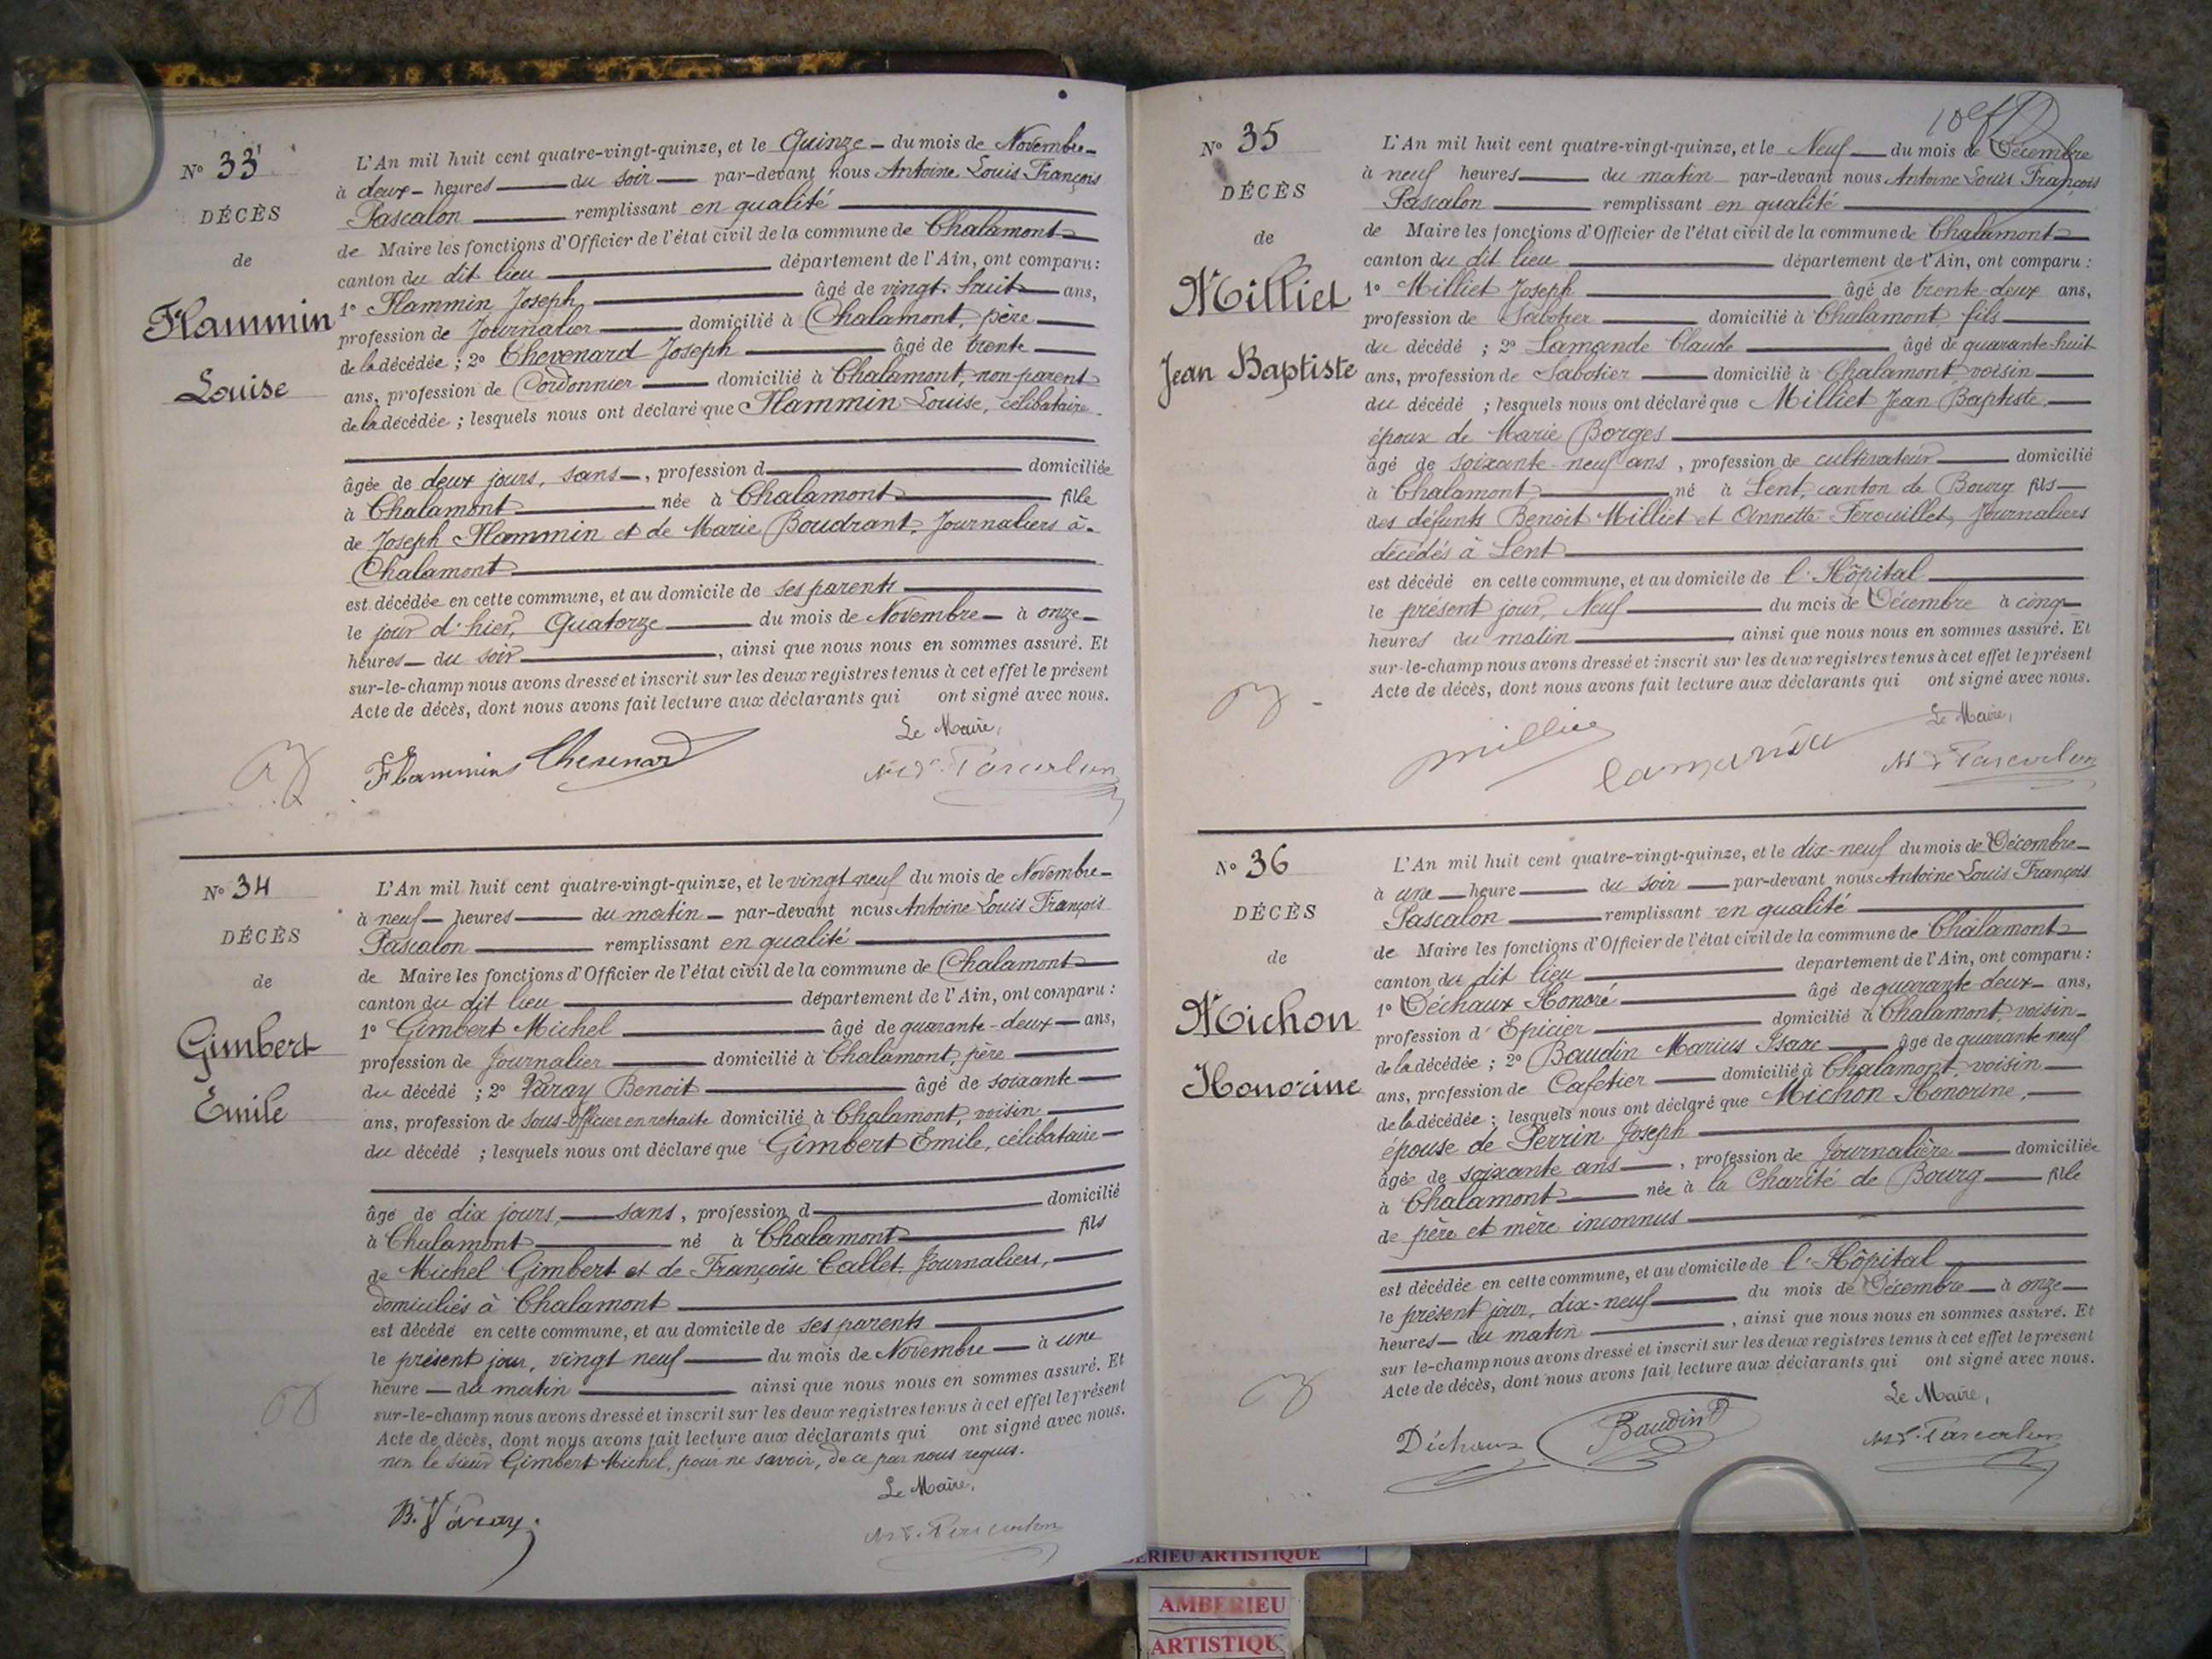 N° 33
DÉCÈS
de
Flammin
Louise
L'An mil huit cent quatre-vingt-quinze, et le Quinze du mois de Novembre
à deux heures du soir par-devant nous Antoine Louis François
Pascalon remplissant en qualité
de Maire les fonctions d'Officier de l'état civil de la commune de Chalamont
canton du dit lieu département de l'Ain, ont comparu :
1° Flammin Joseph âgé de vingt-huit ans,
profession de Journalier domicilié à Chalamont, père
de la décédée ; 2° Chevenard Joseph âgé de trente
ans, profession de Cordonnier domicilié à Chalamont, non parent
de la décédée ; lesquels nous ont déclaré que Flammin Louise, célibataire
âgée de deux jours, sans, profession d domiciliée
à Chalamont née à Chalamont fille
de Joseph Flammin et de Marie Boudrant, Journaliers à
Chalamont
est décédée en cette commune, et au domicile de ses parents
le jour d'hier, Quatorze du mois de Novembre à onze
heures du soir, ainsi que nous nous en sommes assuré. Et
sur-le-champ nous avons dressé et inscrit sur les deux registres tenus à cet effet le présent
Acte de décès, dont nous avons fait lecture aux déclarants qui ont signé avec nous.
Le Maire,
Flammin Chevenard Pascalon
N° 34
DÉCÈS
de
Gimbert
Emile
L'An mil huit cent quatre-vingt-quinze, et le vingt-neuf du mois de Novembre
à neuf heures du matin par-devant nous Antoine Louis François
Pascalon remplissant en qualité
de Maire les fonctions d'Officier de l'état civil de la commune de Chalamont
canton du dit lieu département de l'Ain, ont comparu :
1° Gimbert Michel âgé de quarante-deux ans,
profession de Journalier domicilié à Chalamont, père
du décédé ; 2° Varay Benoit âgé de soixante
ans, profession de Sous-Officier en retraite domicilié à Chalamont, voisin
du décédé ; lesquels nous ont déclaré que Gimbert Emile, célibataire
âgé de dix jours, sans, profession d domicilié
à Chalamont né à Chalamont fils
de Michel Gimbert et de Françoise Callet, Journaliers,
domiciliés à Chalamont
est décédé en cette commune, et au domicile de ses parents
le présent jour, vingt neuf du mois de Novembre à une
heure du matin ainsi que nous nous en sommes assuré. Et
sur-le-champ nous avons dressé et inscrit sur les deux registres tenus à cet effet le présent
Acte de décès, dont nous avons fait lecture aux déclarants qui ont signé avec nous.
non le sieur Gimbert Michel, pour ne savoir, de ce par nous requis.
Le Maire,
B. Varay Pascalon
N° 35
DÉCÈS
de
Milliet
Jean Baptiste
L'An mil huit cent quatre-vingt-quinze, et le Neuf du mois de Décembre
à neuf heures du matin par-devant nous Antoine Louis François
Pascalon remplissant en qualité
de Maire les fonctions d'Officier de l'état civil de la commune de Chalamont
canton du dit lieu département de l'Ain, ont comparu :
1° Milliet Joseph âgé de trente-deux ans,
profession de Sabotier domicilié à Chalamont, fils
du décédé ; 2° Lamande Claude âgé de quarante-huit
ans, profession de Sabotier domicilié à Chalamont voisin
du décédé ; lesquels nous ont déclaré que Milliet Jean Baptiste,
époux de Marie Borges
âgé de soixante-neuf ans, profession de cultivateur domicilié
à Chalamont né à Lent, canton de Bourg fils
des défunts Benoit Milliet et Annette Ferouillet, Journaliers
décédés à Lent
est décédé en cette commune, et au domicile de l'Hôpital
le présent jour, Neuf du mois de Décembre à cinq
heures du matin ainsi que nous nous en sommes assuré. Et
sur-le-champ nous avons dressé et inscrit sur les deux registres tenus à cet effet le présent
Acte de décès, dont nous avons fait lecture aux déclarants qui ont signé avec nous.
Le Maire,
Milliet Lamande Pascalon
N° 36
DÉCÈS
de
Michon
Honorine
L'An mil huit cent quatre-vingt-quinze, et le dix-neuf du mois de Décembre
à une heure du soir par-devant nous Antoine Louis François
Pascalon remplissant en qualité
de Maire les fonctions d'Officier de l'état civil de la commune de Chalamont
canton du dit lieu département de l'Ain, ont comparu :
1° Déchaux Honoré âgé de quarante deux ans,
profession d'Epicier domicilié à Chalamont, voisin
de la décédée ; 2° Baudin Marius Isaac âgé de quarante neuf
ans, profession de Cafetier domicilié à Chalamont, voisin
de la décédée ; lesquels nous ont déclaré que Michon Honorine,
épouse de Perrin Joseph
âgée de soixante ans, profession de Journalière domiciliée
à Chalamont née à la Charité de Bourg fille
de père et mère inconnus
est décédée en cette commune, et au domicile de l'Hôpital
le présent jour, dix-neuf du mois de Décembre à onze
heures du matin, ainsi que nous nous en sommes assuré. Et
sur le-champ nous avons dressé et inscrit sur les deux registres tenus à cet effet le présent
Acte de décès, dont nous avons fait lecture aux déclarants qui ont signé avec nous.
Le Maire,
Déchaux Baudin Pascalon
BERIEU ARTISTIQUE
AMBERIEU
ARTISTIQU